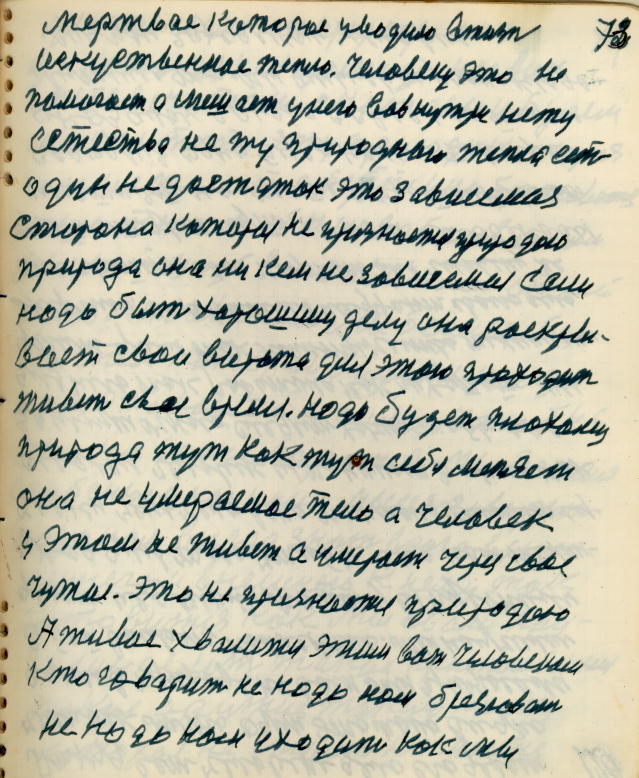 73
мертвае каторае уводило втат
искуственнае тепло. Человеку это не
помогает а мешает унего вовнутре нету
естества не ту природнаго тепла есть
один не достаток это зависемая
сторона каторая не признается природаю
природа она ни кем не зависемая Сами
надо быть харошиму делу она раскры-
вает свои варота для этаго праходит
живет свае время. надо будет плохому
природа тут как тут себя меняет
она не умераемое тело а человек
у этом не живет а умерает через свае
чужое. Это не признается природаю
А живае хвалится этим вот человеком
Кто говарит не надо нам брезговат
не надо нам уходит как мы